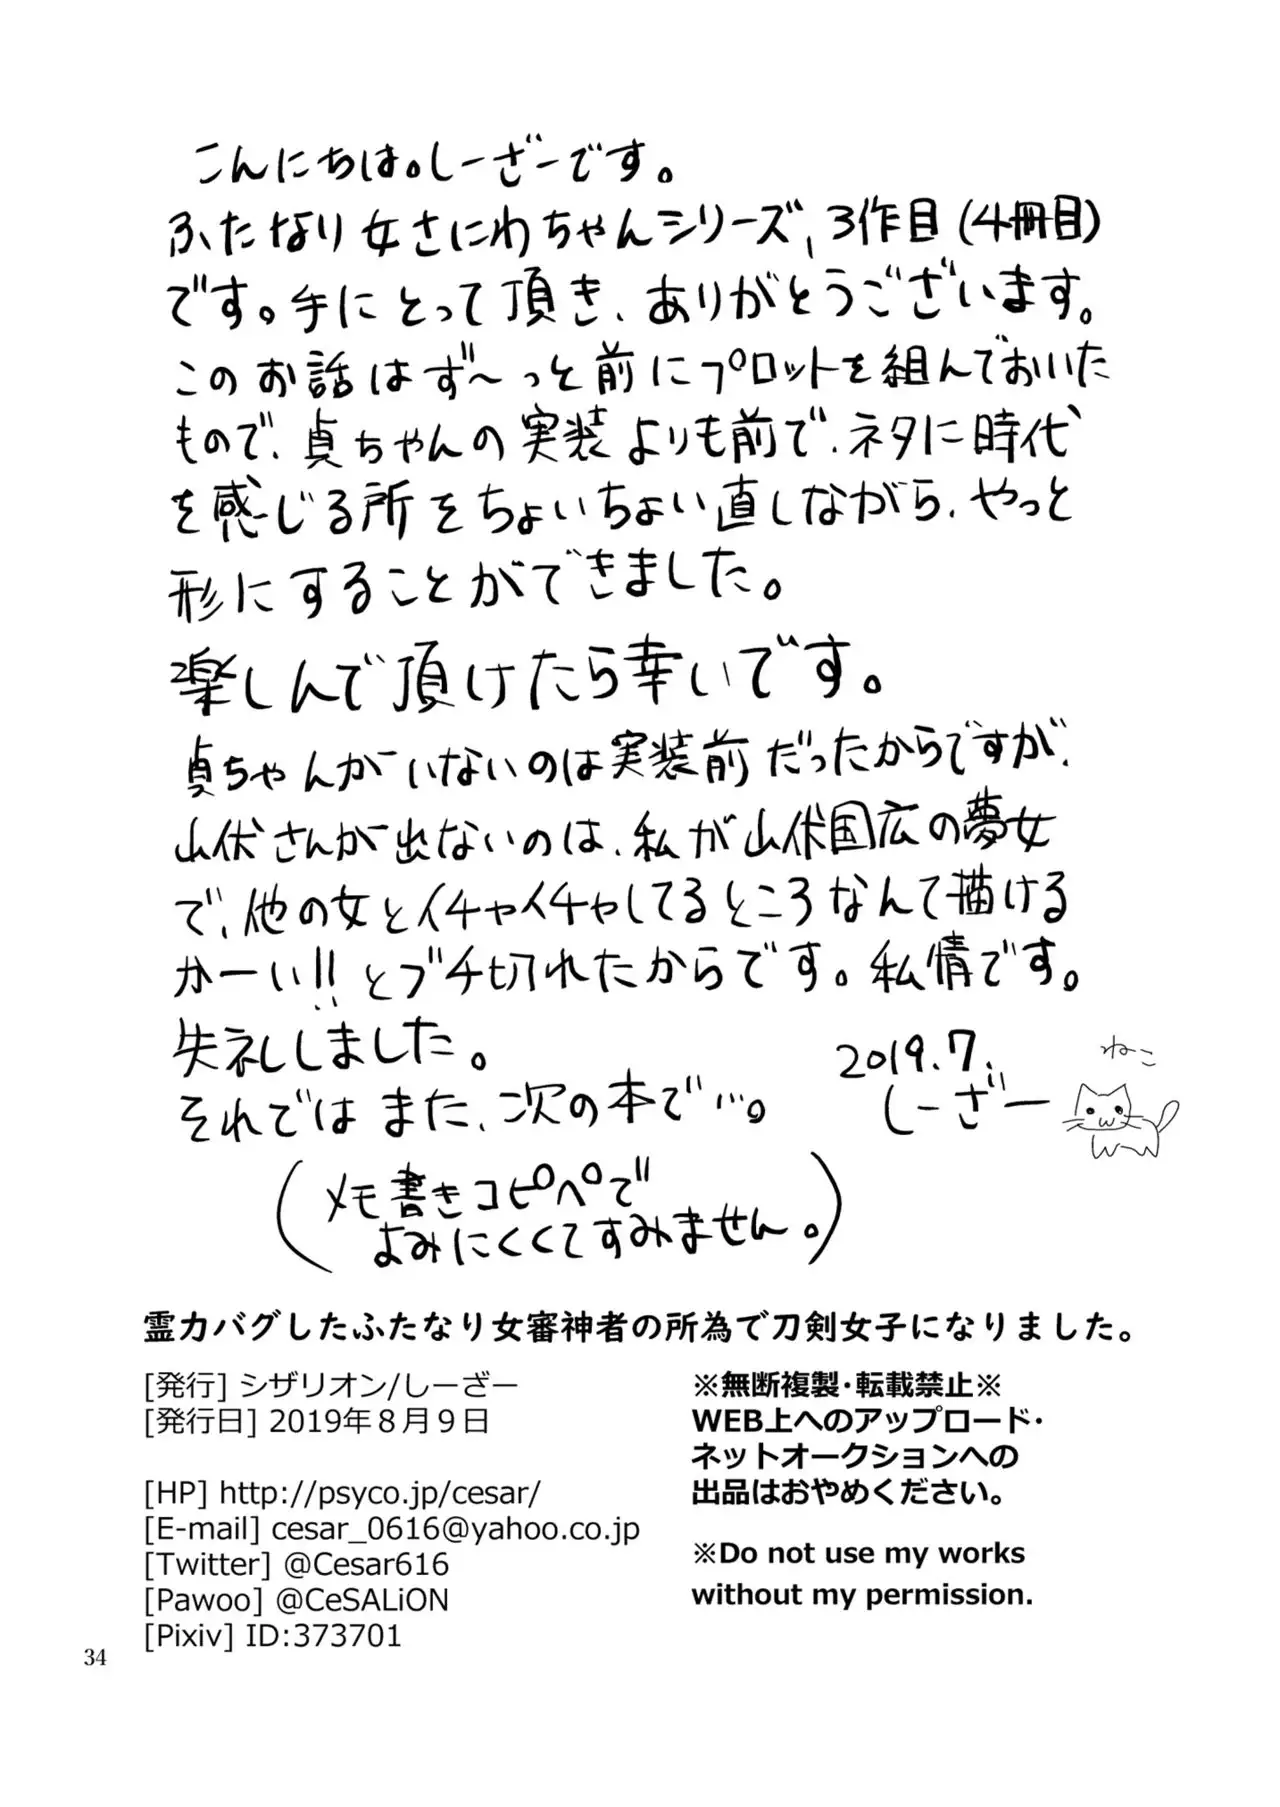 こんにちは。しーざーです。
ふたなり女さにわちゃんシリーズ、3作目(4冊目)
です。手にとって頂き、ありがとうございます。
このお話はず〜っと前にプロットを組んでおいた
もので、貞ちゃんの実装よりも前で、ネタに時代
を感じる所をちょいちょい直しながら、やっと
形にすることができました。
楽しんで頂けたら幸いです。
貞ちゃんがいないのは実装前だったからですが、
山伏さんが出ないのは、私が山伏国広の夢女
で、他の女とイチャイチャしてるところなんて描ける
かーい!!とブチ切れたからです。私情です。
失礼ししました。
それではまた、次の本で…。
2019.7.
しーざー
ねこ
(メモ書きコピペで
よみにくくてすみません。)
霊力バグしたふたなり女審神者の所為で刀剣女子になりました。
[発行] シザリオン/しーざー
[発行日] 2019年8月9日
[HP] http://psyco.jp/cesar/
[E-mail] cesar_0616@yahoo.co.jp
[Twitter] @Cesar616
[Pawoo] @CeSALiON
[Pixiv] ID:373701
※無断複製・転載禁止※
WEB上へのアップロード・
ネットオークションへの
出品はおやめください。
※Do not use my works
without my permission.
34